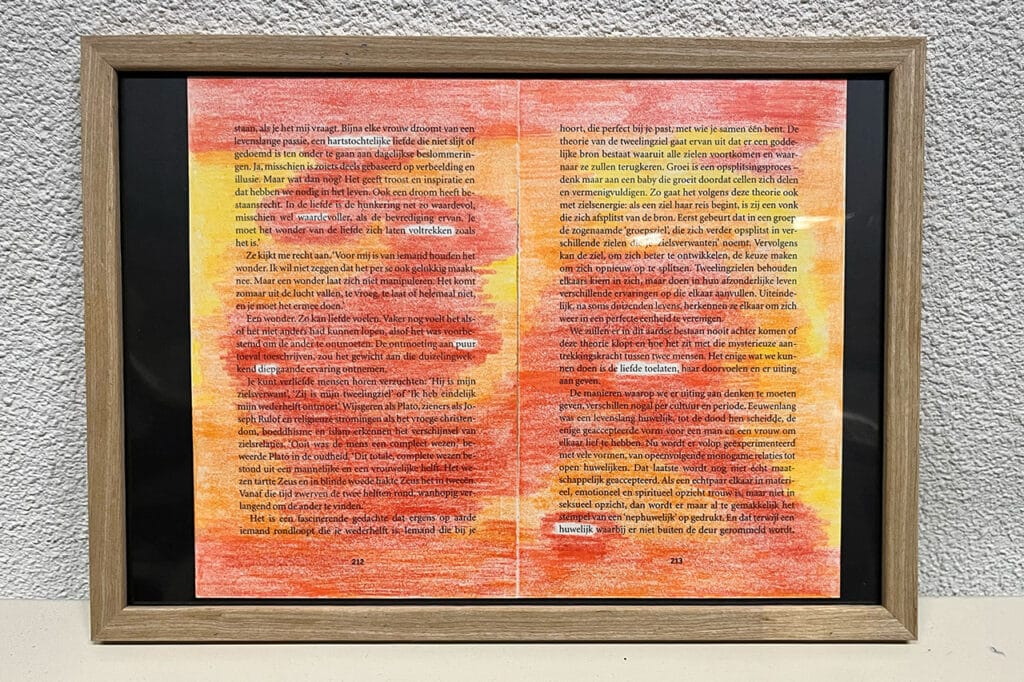 staan, als je het mij vraagt. Bijna elke vrouw droomt van een
levenslange passie, een hartstochtelijke liefde die niet slijt of
gedoemd is ten onder te gaan aan dagelijkse beslommerin-
gen. Ja, misschien is zoiets deels gebaseerd op verbeelding en
illusie. Maar wat dan nog? Het geeft troost en inspiratie en
dat hebben we nodig in het leven. Ook een droom heeft be-
staansrecht. In de liefde is de hunkering net zo waardevol,
misschien wel waardevoller, als de bevrediging ervan. Je
moet het wonder van de liefde zich laten voltrekken zoals
het is.’
Ze kijkt me recht aan. ‘Voor mij is van iemand houden het
wonder. Ik wil niet zeggen dat het per se ook gelukkig maakt,
nee. Maar een wonder laat zich niet manipuleren. Het komt
zomaar uit de lucht vallen, te vroeg, te laat of helemaal niet,
en je moet het ermee doen.’
Een wonder. Zo kan liefde voelen. Vaker nog voelt het als-
of het niet anders had kunnen lopen, alsof het was voorbe-
stemd om de ander te ontmoeten. De ontmoeting aan puur
toeval toeschrijven, zou het gewicht aan die duizelingwek-
kend diepgaande ervaring ontnemen.
Je kunt verliefde mensen horen verzuchten: ‘Hij is mijn
zielsverwant’, ‘Zij is mijn tweelingziel’ of ‘Ik heb eindelijk
mijn wederhelft ontmoet’. Wijsgeren als Plato, zieners als Jo-
seph Rulof en religieuze stromingen als het vroege christen-
dom, boeddhisme en islam erkennen het verschijnsel van
zielsrelaties. ‘Ooit was de mens een compleet wezen,’ be-
weerde Plato in de oudheid. ‘Dit totale, complete wezen be-
stond uit een mannelijke en een vrouwelijke helft. Het we-
zen tartte Zeus en in blinde woede hakte Zeus het in tweeën.
Vanaf die tijd zwerven de twee helften rond, wanhopig ver-
langend om de ander te vinden.’
Het is een fascinerende gedachte dat ergens op aarde
iemand rondloopt die je wederhelft is. Iemand die bij je
212
hoort, die perfect bij je past, met wie je samen één bent. De
theorie van de tweelingziel gaat ervan uit dat er een godde-
lijke bron bestaat waaruit alle zielen voortkomen en waar-
naar ze zullen terugkeren. Groei is een opsplitsingsproces –
denk maar aan een baby die groeit doordat cellen zich delen
en vermenigvuldigen. Zo gaat het volgens deze theorie ook
met zielsenergie: als een ziel haar reis begint, is zij een vonk
die zich afsplitst van de bron. Eerst gebeurt dat in een groep
de zogenaamde ‘groepsziel’, die zich verder opsplitst in ver-
schillende zielen die je ‘zielsverwanten’ noemt. Vervolgens
kan de ziel, om zich beter te ontwikkelen, de keuze maken
om zich opnieuw op te splitsen. Tweelingzielen behouden
elkaars kiem in zich, maar doen in hun afzonderlijke leven
verschillende ervaringen op die elkaar aanvullen. Uiteinde-
lijk, na soms duizenden levens, herkennen ze elkaar om zich
weer in een perfecte eenheid te verenigen.
We zullen er in dit aardse bestaan nooit achter komen of
deze theorie klopt en hoe het zit met die mysterieuze aan-
trekkingskracht tussen twee mensen. Het enige wat we kun-
nen doen is de liefde toelaten, haar doorvoelen en er uiting
aan geven.
De manieren waarop we er uiting aan denken te moeten
geven, verschillen nogal per cultuur en periode. Eeuwenlang
was een levenslang huwelijk, tot de dood hen scheidde, de
enige geaccepteerde vorm voor een man en een vrouw om
elkaar lief te hebben. Nu wordt er volop geëxperimenteerd
met vele vormen, van opeenvolgende monogame relaties tot
open huwelijken. Dat laatste wordt nog niet écht maat-
schappelijk geaccepteerd. Als een echtpaar elkaar in materi-
eel, emotioneel en spiritueel opzicht trouw is, maar niet in
seksueel opzicht, dan wordt er maar al te gemakkelijk het
stempel van een ‘nephuwelijk’ op gedrukt. En dat terwijl een
huwelijk waarbij er niet buiten de deur gerommeld wordt,
213